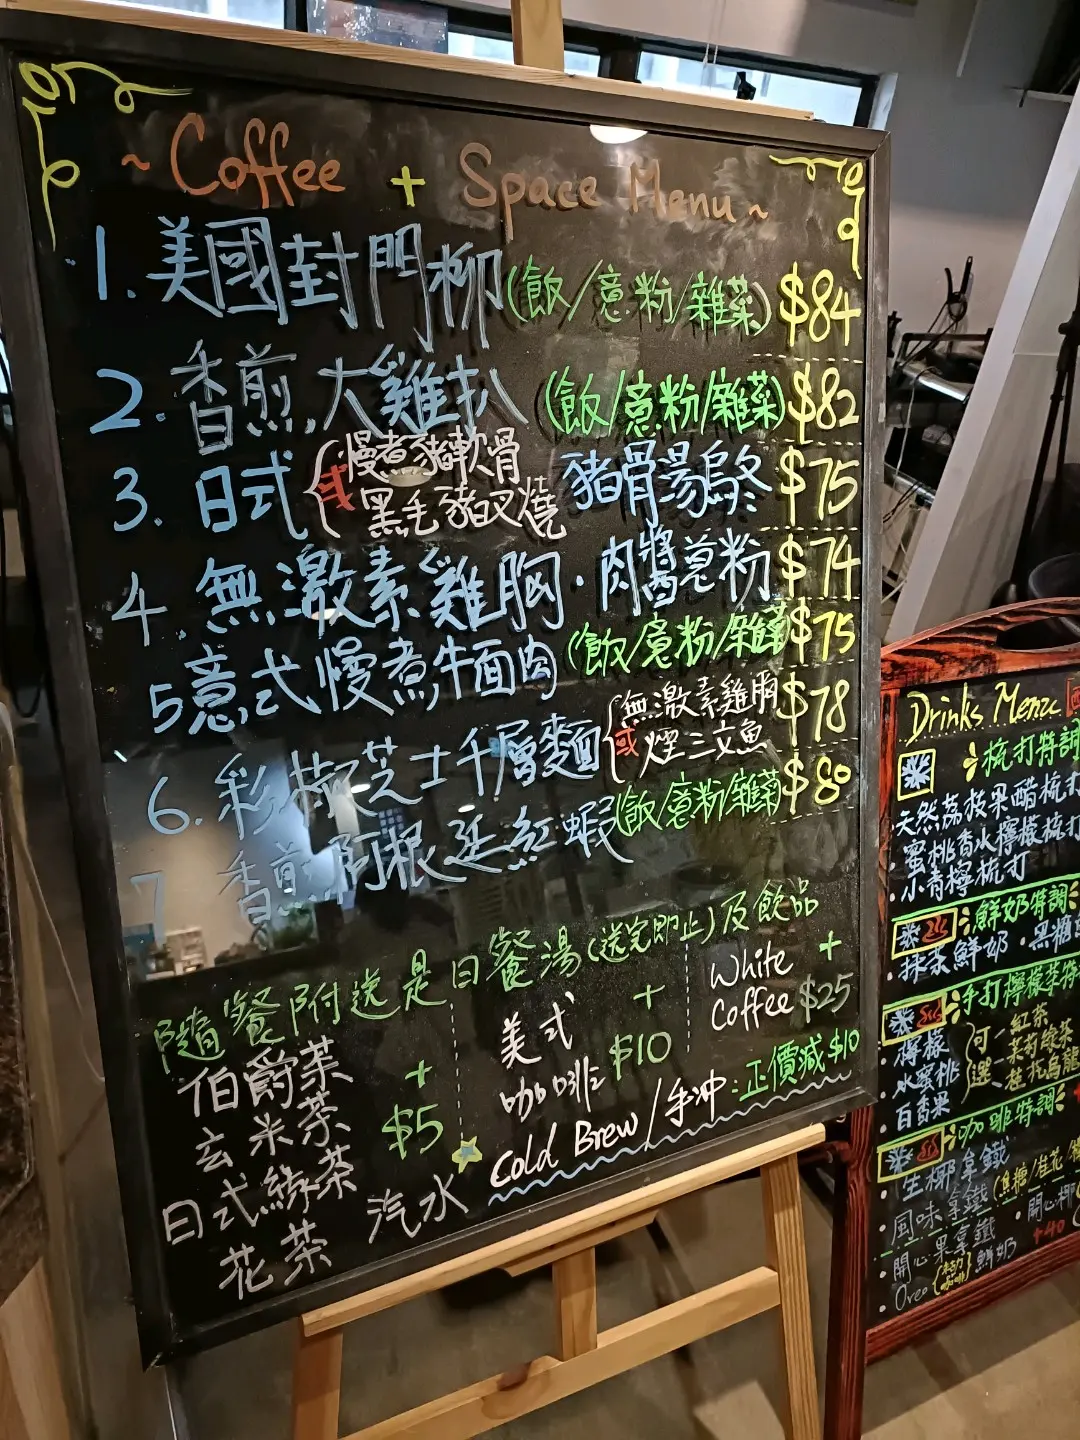 ~ Coffee + Space Menu ~
1. 美國封門柳 (飯/意粉/雜菜) $84
2. 香煎大雞扒 (飯/意粉/雜菜) $82
3. 日式 {慢煮豬軟骨 或 黑毛豬叉燒 豬骨湯烏冬 $75
4. 無激素雞胸·肉醬意粉 $74
5 意式慢煮牛面肉 (飯/意粉/雜菜) $75
6. 彩椒芝士千層麵 {無激素雞胸 或 煙三文魚 $78
7 香煎阿根廷紅蝦 (飯/意粉/雜菜) $80
隨餐附送是日餐湯(送完即止)及飲品
伯爵茶
玄米茶
日式綠茶
花茶
+
$5
汽水
美式
咖啡
+
$10
White
Coffee
+
$25
Cold Brew/手冲:正價減$10
Drinks Menu
梳打特調
天然荔枝果醋梳打
蜜桃香水檸檬梳打
小青檸梳打
鮮奶特調
·抹茶鮮奶 ·黑糖
手打檸檬茶特
·檸檬
水蜜桃
百香果
可選
-紅茶
-茉莉綠茶
-桂花烏龍
咖啡特調
·生椰拿鐵
·風味拿鐵 (焦糖/桂花/
·開心果拿鐵 ·開心椰
+40
·Oreo 鮮奶